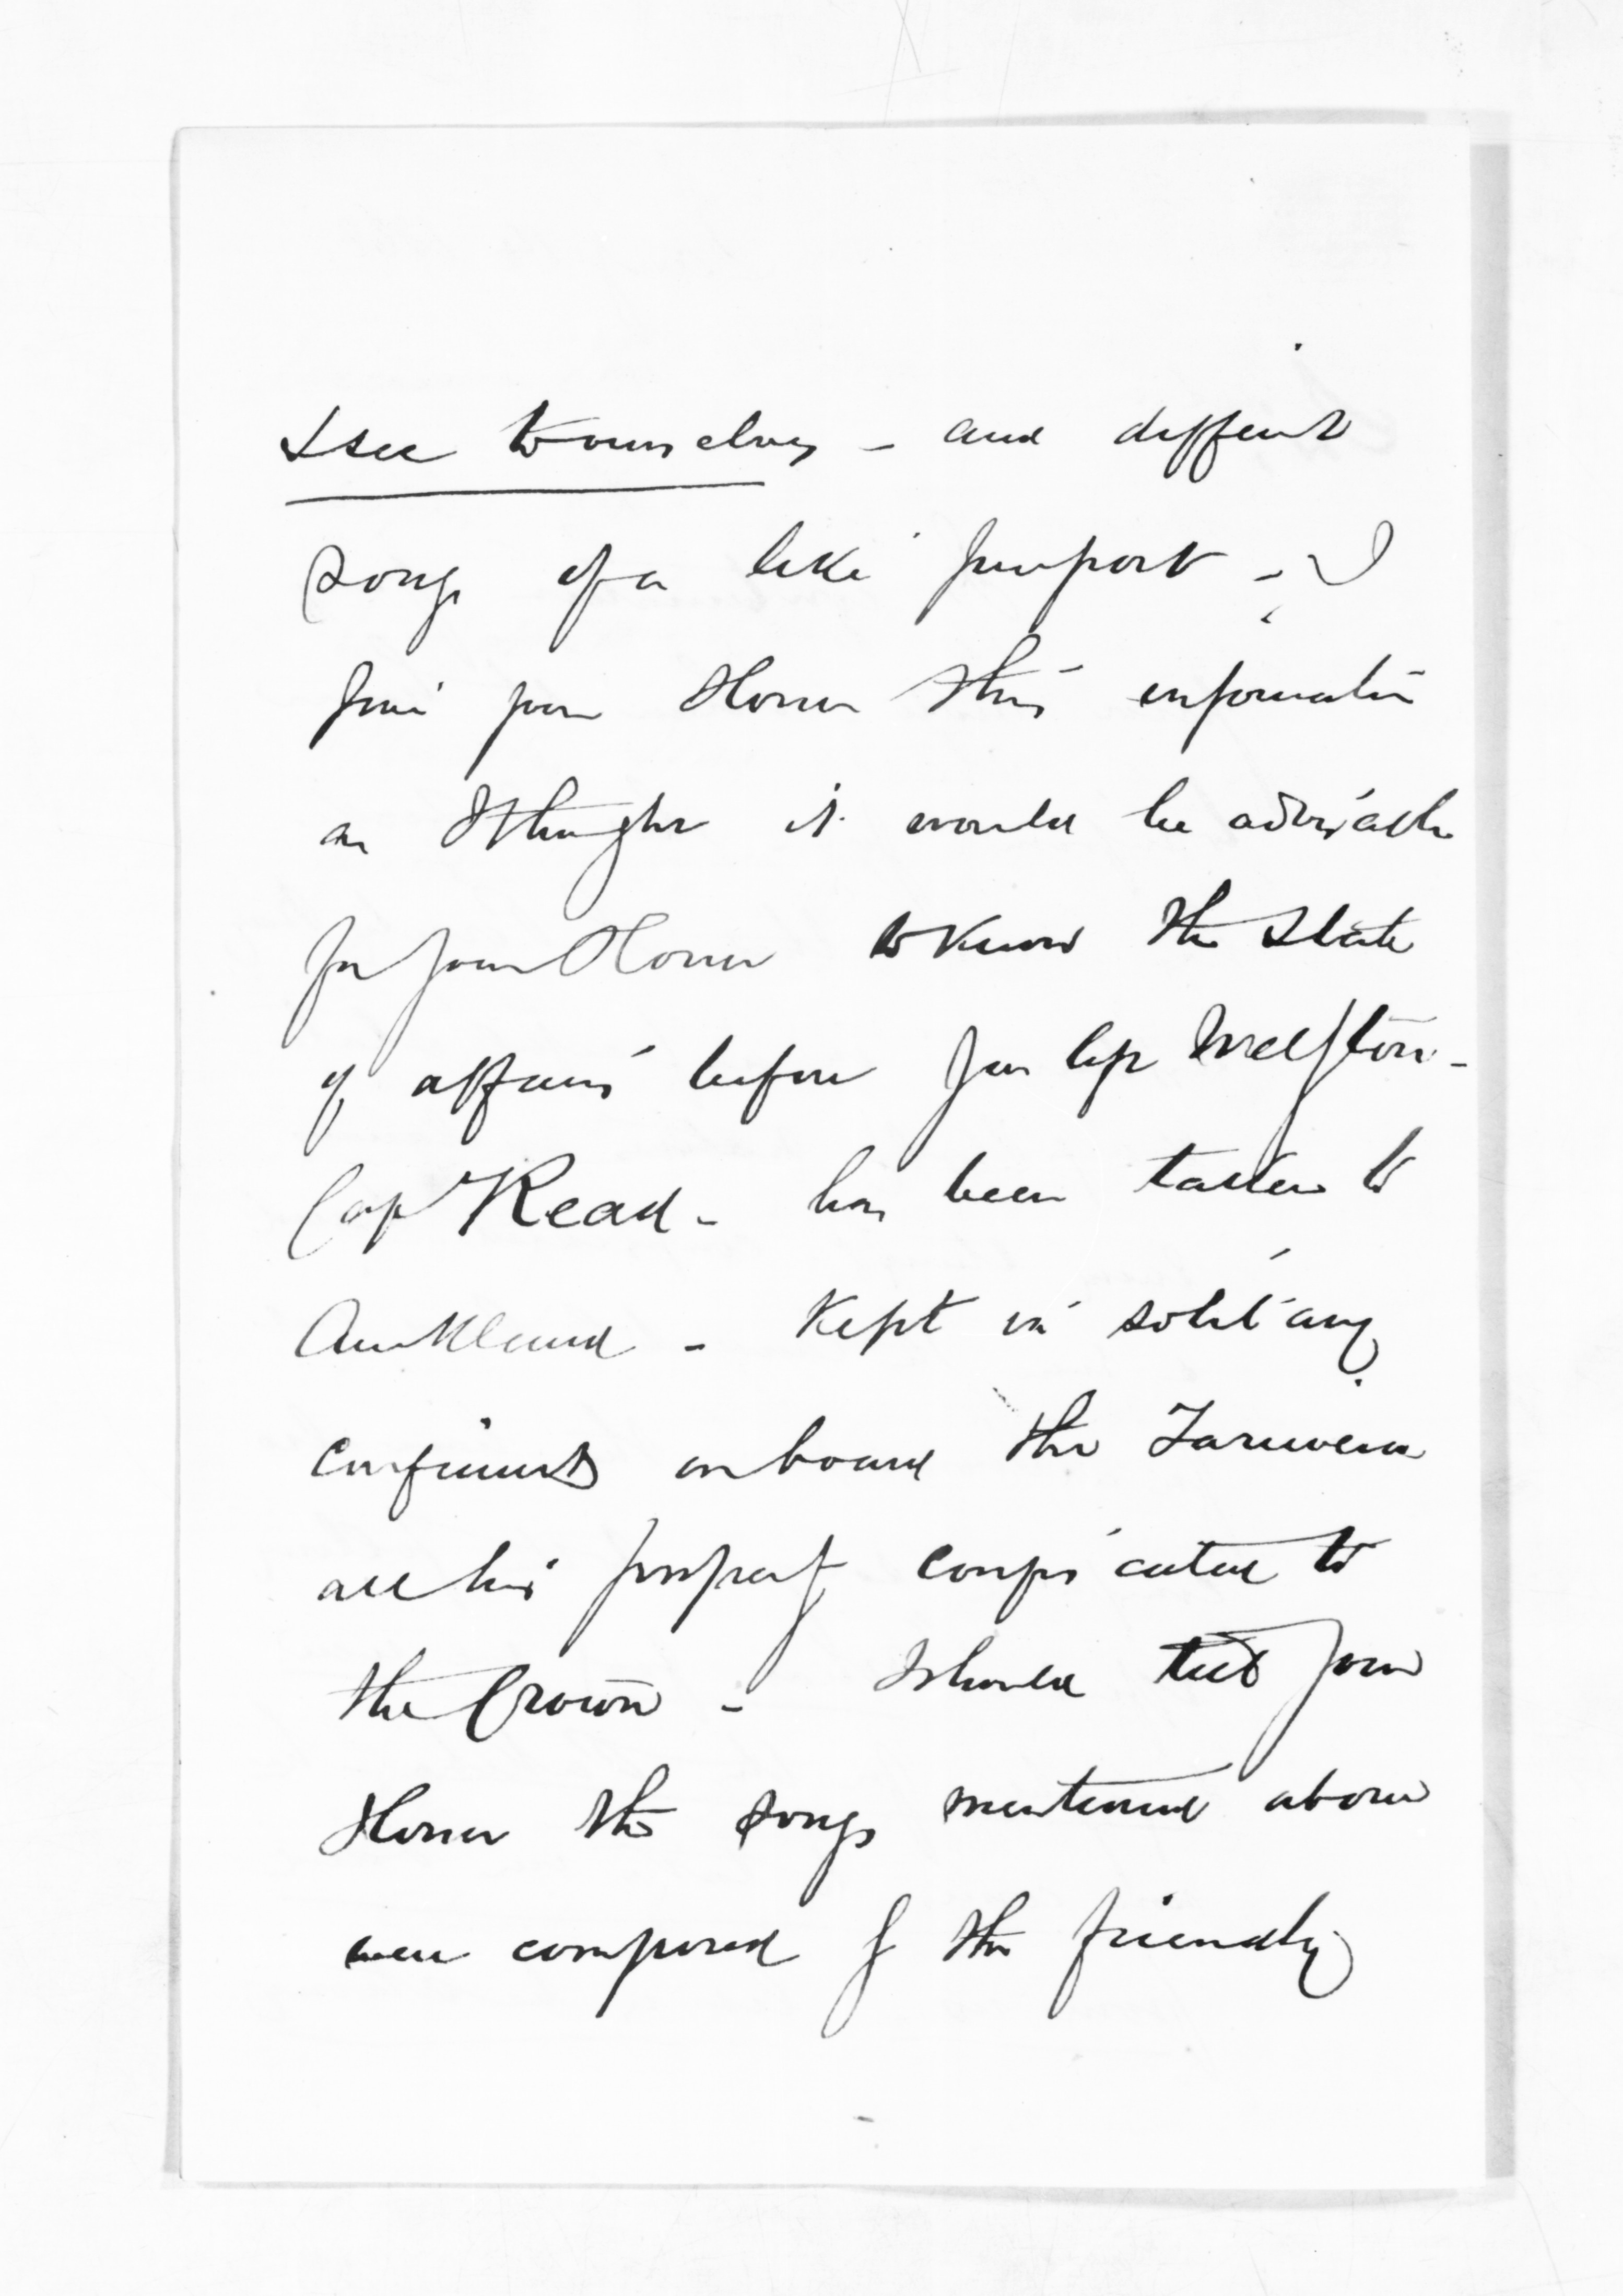 & see to ourselves - and different
songs of a like purport - I
give your Honor this information
as I thought it would be advisable
for your Honor to know the state
of affairs before you left Wellgton -
Cap Read - has been taken to
Auckland - Kept in solitary
confinement on board the
all his property confiscated to
the Crown - I should tell your
Honor the songs mentioned above
were composed by the friendly